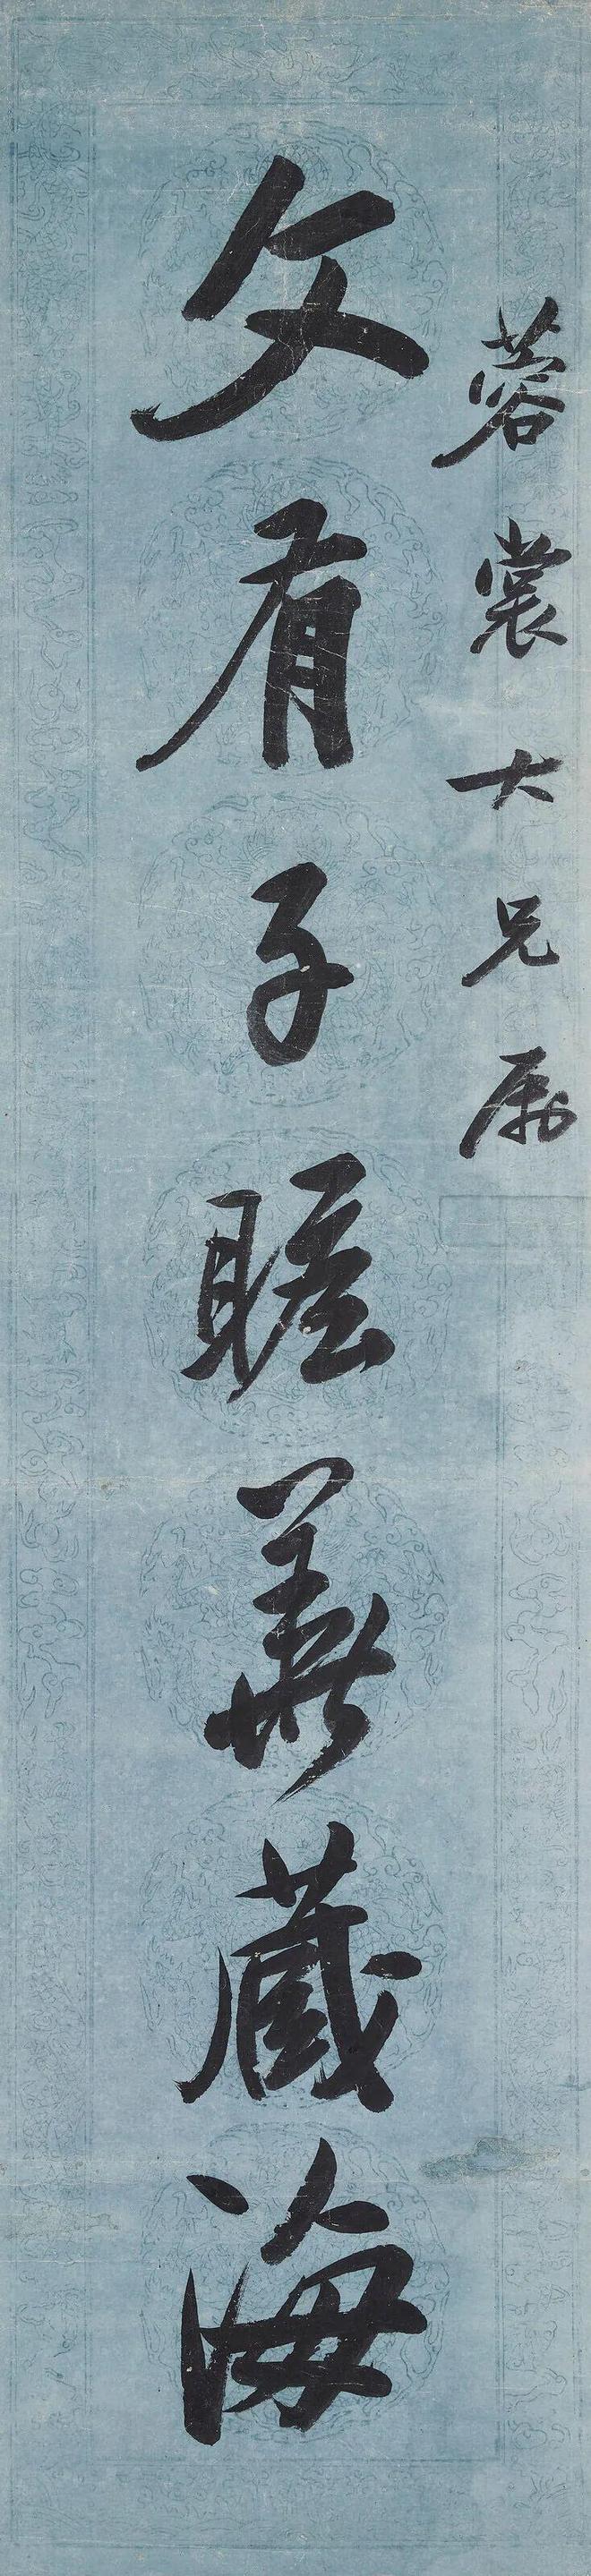 蓉裳大兄属
文有子瞻兼藏海